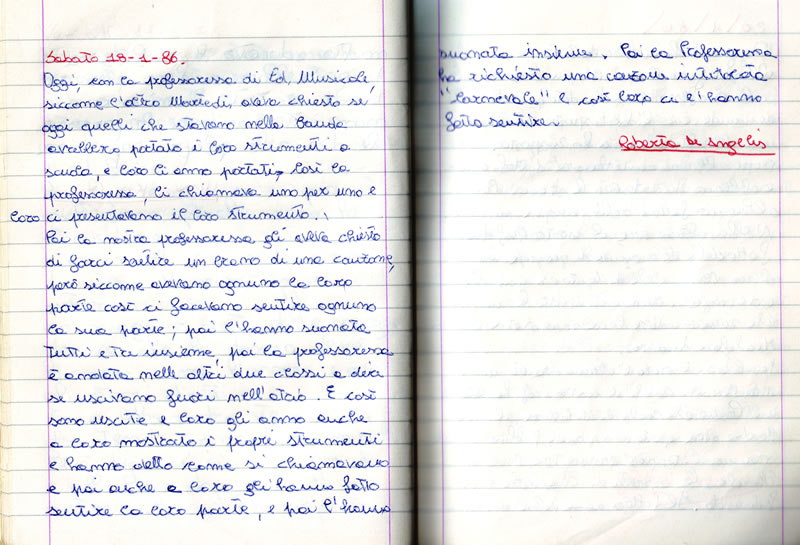 Sabato 18-1-86.
Oggi, con la professoressa di Ed. Musicale,
siccome l'altro Martedi, aveva chiesto se
oggi quelli che stavano nella banda
avrebbero portato i loro strumenti a
scuola, e loro li anno portati, così la
professoressa, li chiamava uno per uno e
loro ci presentavano il loro strumento.
Poi la nostra professoressa gli aveva chiesto
di farci sentire un brano di una canzone,
però siccome avevano ognuno la loro
parte così ci facevano sentire ognuno
la sua parte; poi l'hanno suonata
tutti e tre insieme, poi la professoressa
è andata nelle altri due classi a dire
se uscivano fuori nell'atrio. E così
sono uscite e loro gli anno anche
a loro mostrato i propri strumenti
e hanno detto come si chiamavano
e poi anche a loro gli hanno fatto
sentire la loro parte, e poi l'hanno
suonata insieme. Poi la Professoressa
ha richiesto una canzone intitolata
"Carnevale" e così loro ce l'hanno
fatta sentire.
Roberta De Angelis